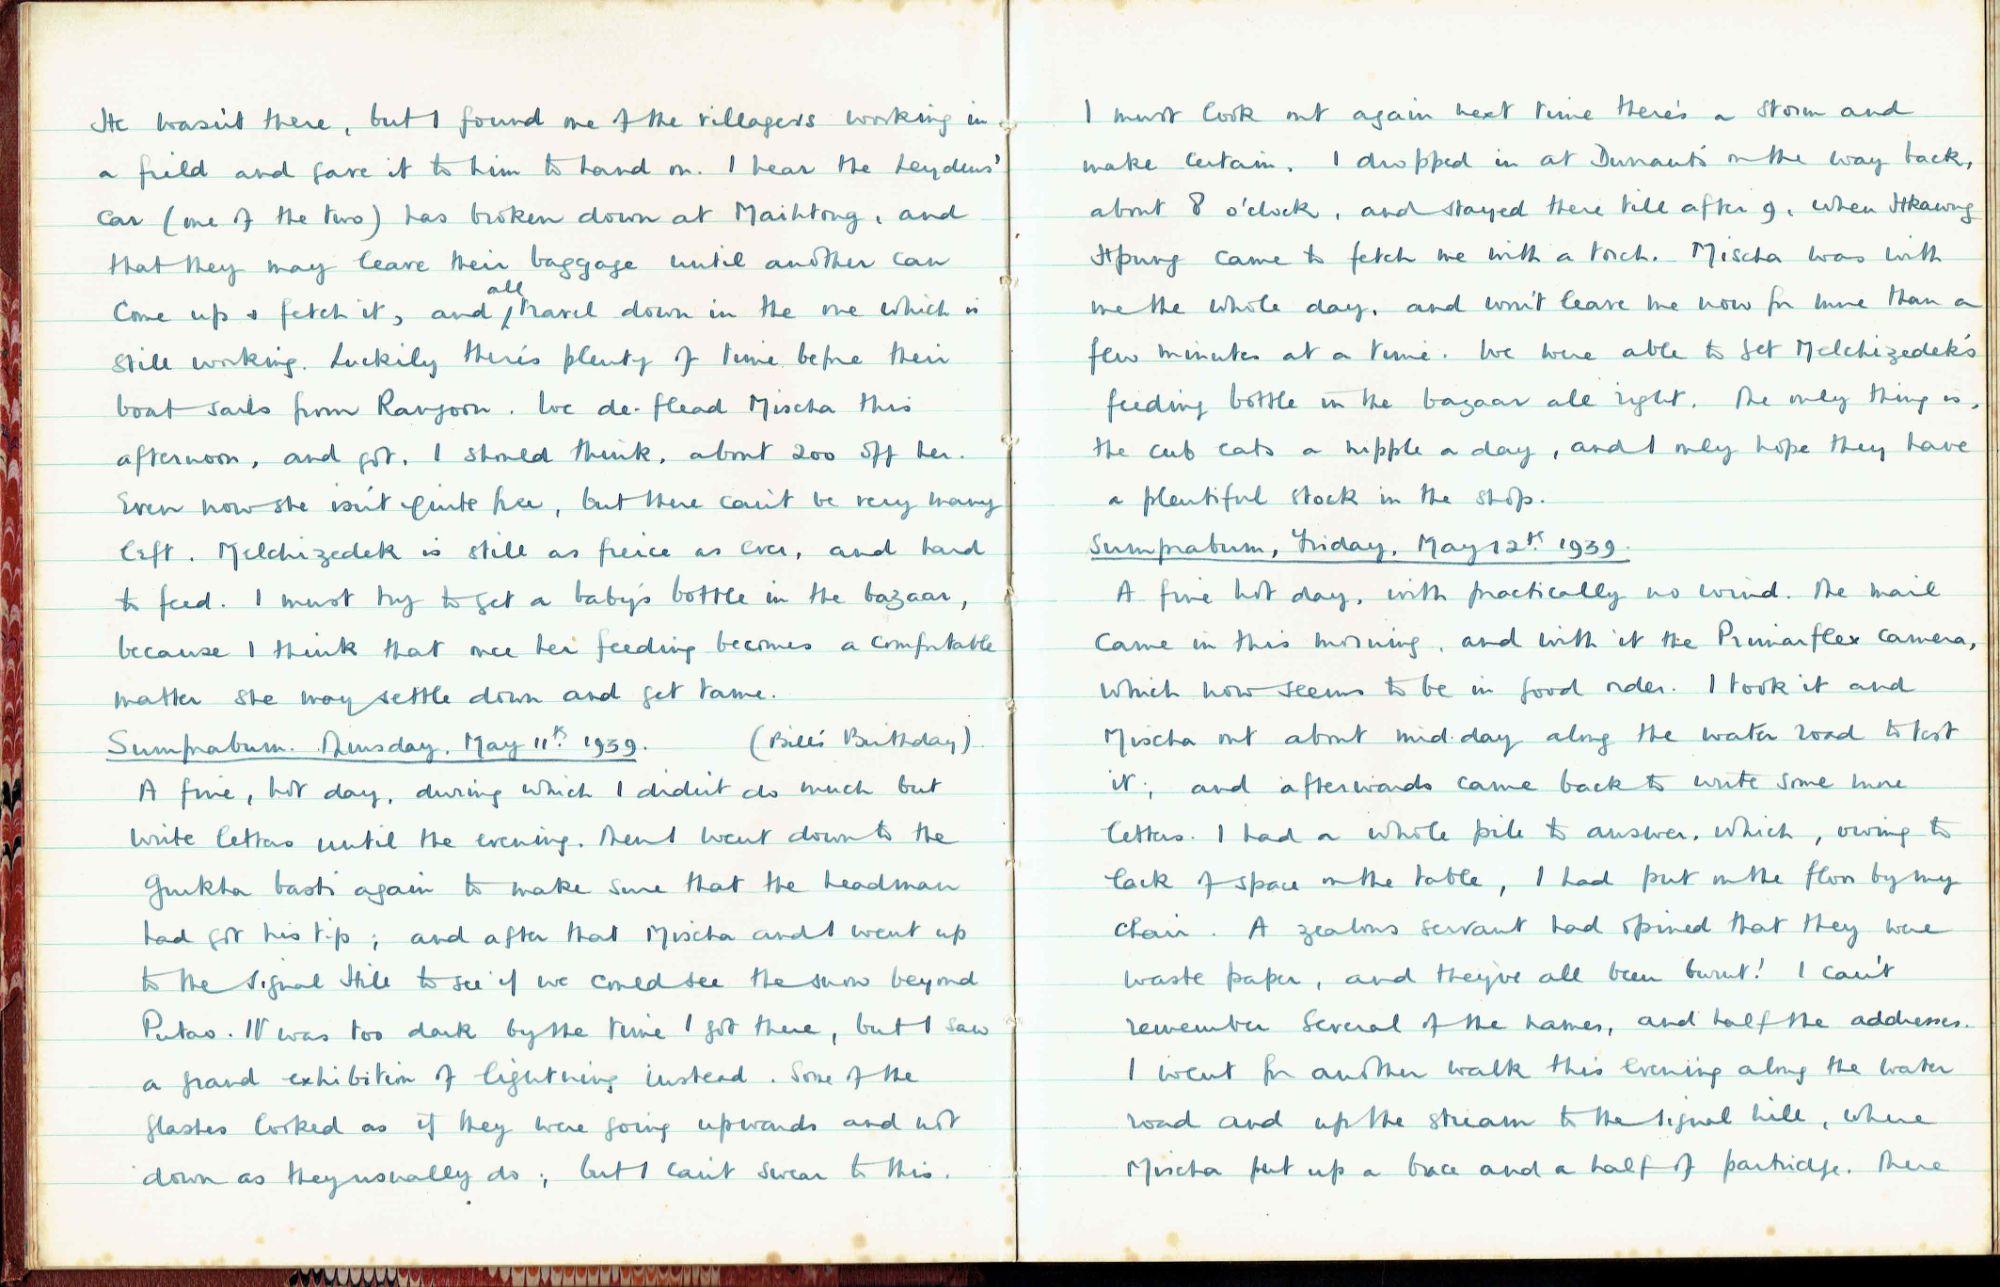 He wasn't there, but I found one of the villagers working in
a field and gave it to him to hand on. I hear the Leydens'
car (one of the two) has broken down at Maihtong, and
that they may leave their baggage until another can
come up & fetch it, and all travel down in the one which is
still working. Luckily there's plenty of time before their
boat sails from Rangoon. We de-flead Mischa this
afternoon, and got, I should think, about 200 off her.
Even now she isn't quite free, but there can't be very many
left. Melchizedek is still as fierce as ever, and hard
to feed. I must try to get a baby's bottle in the bazaar,
because I think that once her feeding becomes a comfortable
matter she may settle down and get tame.
Sumprabum. Thursday, May 11th 1939. (Bill's Birthday)
A fine, hot day, during which I didn't do much but
write letters until the evening. Then I went down to the
Gurkha basti again to make sure that the headman
had got his tip; and after that Mischa and I went up
to the Signal Hill to see if we could see the snow beyond
Putao. It was too dark by the time I got there, but I saw
a grand exhibition of lightning instead. Some of the
flashes looked as if they were going upwards and not
down as they usually do; but I can't swear to this.
I must look out again next time there's a storm and
make certain. I dropped in at Durrant's on the way back,
about 8 o'clock, and stayed there till after 9, when Hkawng
Hpung came to fetch me with a torch. Mischa was with
me the whole day, and won't leave me now for more than a
few minutes at a time. We were able to get Melchizedek's
feeding bottle in the bazaar all right. The only thing is,
the cub eats a nipple a day, and I only hope they have
a plentiful stock in the shop.
Sumprabum, Friday, May 12th 1939.
A fine hot day, with practically no wind. The mail
came in this morning, and with it the Primarflex camera,
which now seems to be in good order. I took it and
Mischa out about mid-day along the water road to test
it; and afterwards came back to write some more
letters. I had a whole pile to answer, which, owing to
lack of space on the table, I had put on the floor by my
chair. A zealous servant had opined that they were
waste paper, and they've all been burnt! I can't
remember several of the names, and half the addresses.
I went for another walk this evening along the water
road and up the stream to the signal hill, where
Mischa put up a brace and a half of partridge. There